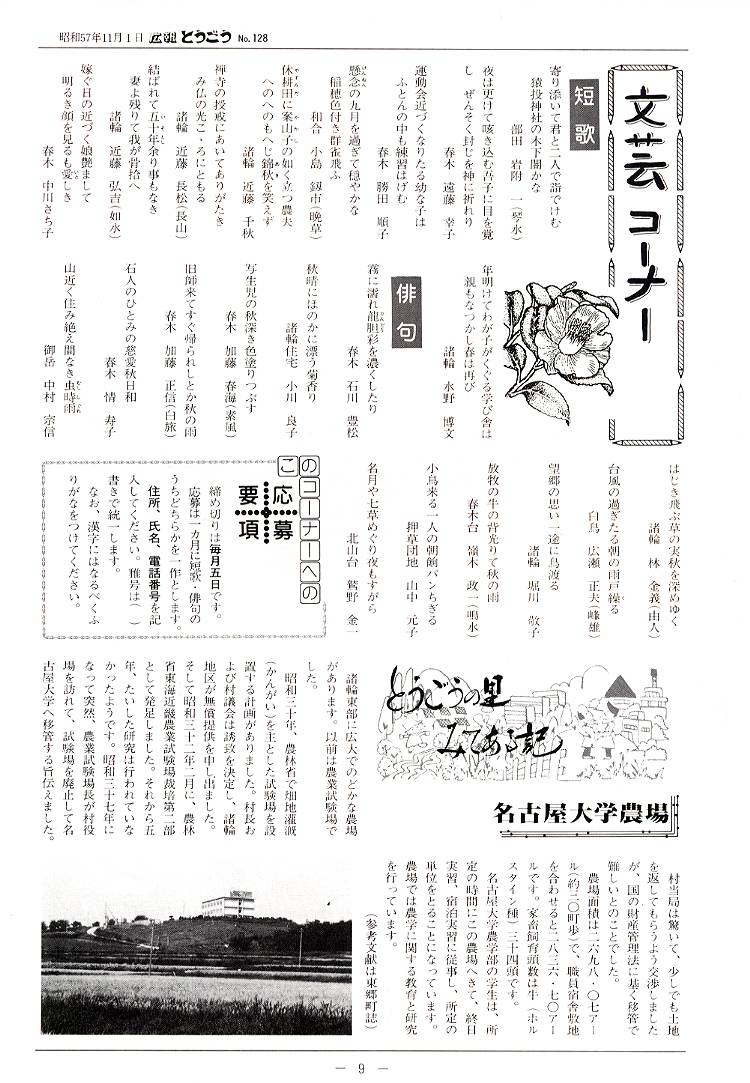 昭和57年11月1日 広報 とうごう No.128
文芸コーナー
短歌
寄り添いて君と二人で詣でけむ
猿投神社の木下闇かな
部田 岩附 一(琴水)
夜は更けて咳き込む吾子に目を覚
し ぜんそく封じを神に祈れり
春木 遠藤 幸子
運動会近づくなりたる幼な子は
ふとんの中も練習はげむ
春木 勝田 順子
懸念の九月を過ぎて穏やかな
稲穂色付き群雀飛ふ
和合 小島 釼市(晩草)
休耕田に案山子の如く立つ農夫
へのへのもへじ錦秋を笑えず
諸輪 近藤 千秋
禅寺の授戒にあいてありがたき
み仏の光こゝろにともる
諸輪 近藤 長松(長山)
結ばれて五十年余り事もなき
妻よ残りて我が骨拾へ
諸輪 近藤 弘吉(如水)
嫁ぐ日の近づく娘艶まして
明るき顔を見るも愛しき
春木 中川さち子
年明けてわが子がくぐる学び舎は
親もなつかし春は再び
諸輪 水野 博文
俳句
霧に濡れ龍胆彩を濃くしたり
春木 石川 豊松
秋晴にほのかに漂う菊香り
諸輪住宅 小川 良子
写生児の秋深き色塗りつぶす
春木 加藤 春海(素風)
旧師来てすぐ帰られしとか秋の雨
春木 加藤 正信(白旅)
石人のひとみの慈愛秋日和
春木 情 寿子
山近く住み絶え間なき虫時雨
御岳 中村 宗信
はじき飛ぶ草の実秋を深めゆく
諸輪 林 金義(由人)
台風の過ぎたる朝の雨戸繰る
白鳥 広瀬 正夫(峰雄)
望郷の思い一途に鳥渡る
諸輪 堀川 敬子
放牧の牛の背光りて秋の雨
春木台 嶺木 政一(鳴水)
小鳥来る一人の朝餉パンちぎる
押草団地 山中 元子
名月や七草めぐり夜もすがら
北山台 鷲野 金一
このコーナーへの
応募要項
締め切りは毎月五日です。
応募は一カ月に短歌・俳句の
うちどちらかを一作とします。
住所、氏名、電話番号を記
入してください。雅号は( )
書きで統一します。
なお、漢字にはなるべくふ
りがなをつけてください。
とうごうの里
みてある記
名古屋大学農場
諸輪東部に広大でのどかな農場
があります。以前は農業試験場で
した。
昭和三十年、農林省で畑地灌漑
(かんがい)を主とした試験場を設
置する計画がありました。村長お
よび村議会は誘致を決定し、諸輪
地区が無償提供を申し出ました。
そして昭和三十二年二月に、農林
省東海近畿農業試験場栽培第二部
として発足しました。それから五
年、たいした研究は行われていな
かったようです。昭和三十七年に
なって突然、農業試験場長が村役
場を訪れて、試験場を廃止して名
古屋大学へ移管する旨伝えました。
村当局は驚いて、少しでも土地
を返してもらうよう交渉しました
が、国の財産管理法に基く移管で
難しいとのことでした。
農場面積は二六九八・〇七アー
ル(約二〇町歩)で、職員宿舎敷地
を合わせると二八三六・七〇アー
ルです。家畜飼育頭数は牛(ホル
スタイン種)三十四頭です。
名古屋大学農学部の学生は、所
定の時間にこの農場へきて、終日
実習、宿泊実習に従事し、所定の
単位をとることになっています。
農場では農学に関する教育と研究
を行っています。
(参考文献は東郷町誌)
— 9 —